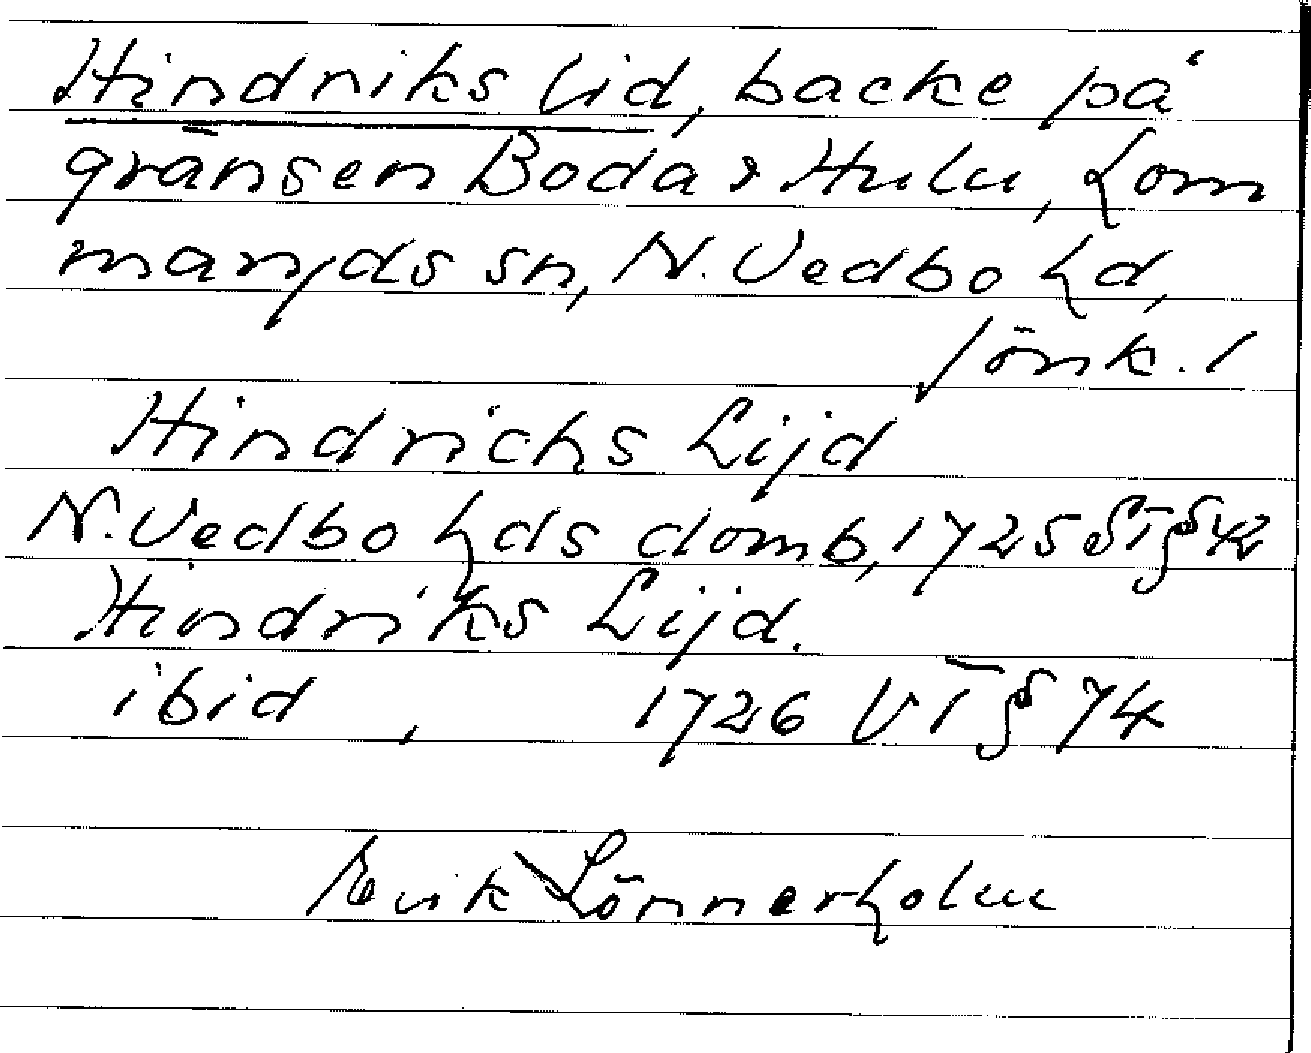 Hindriks lid, backe på
gränsen Boda & Hulu, Lom
maryds sn, N. Vedbo hd,
Jönk. l
Hindrichs Lijd
N. Vedbo hds domb, 1725 ST § 42
Hindriks Lijd.
ibid, 1726 VT § 74
Erik Lönnerholm